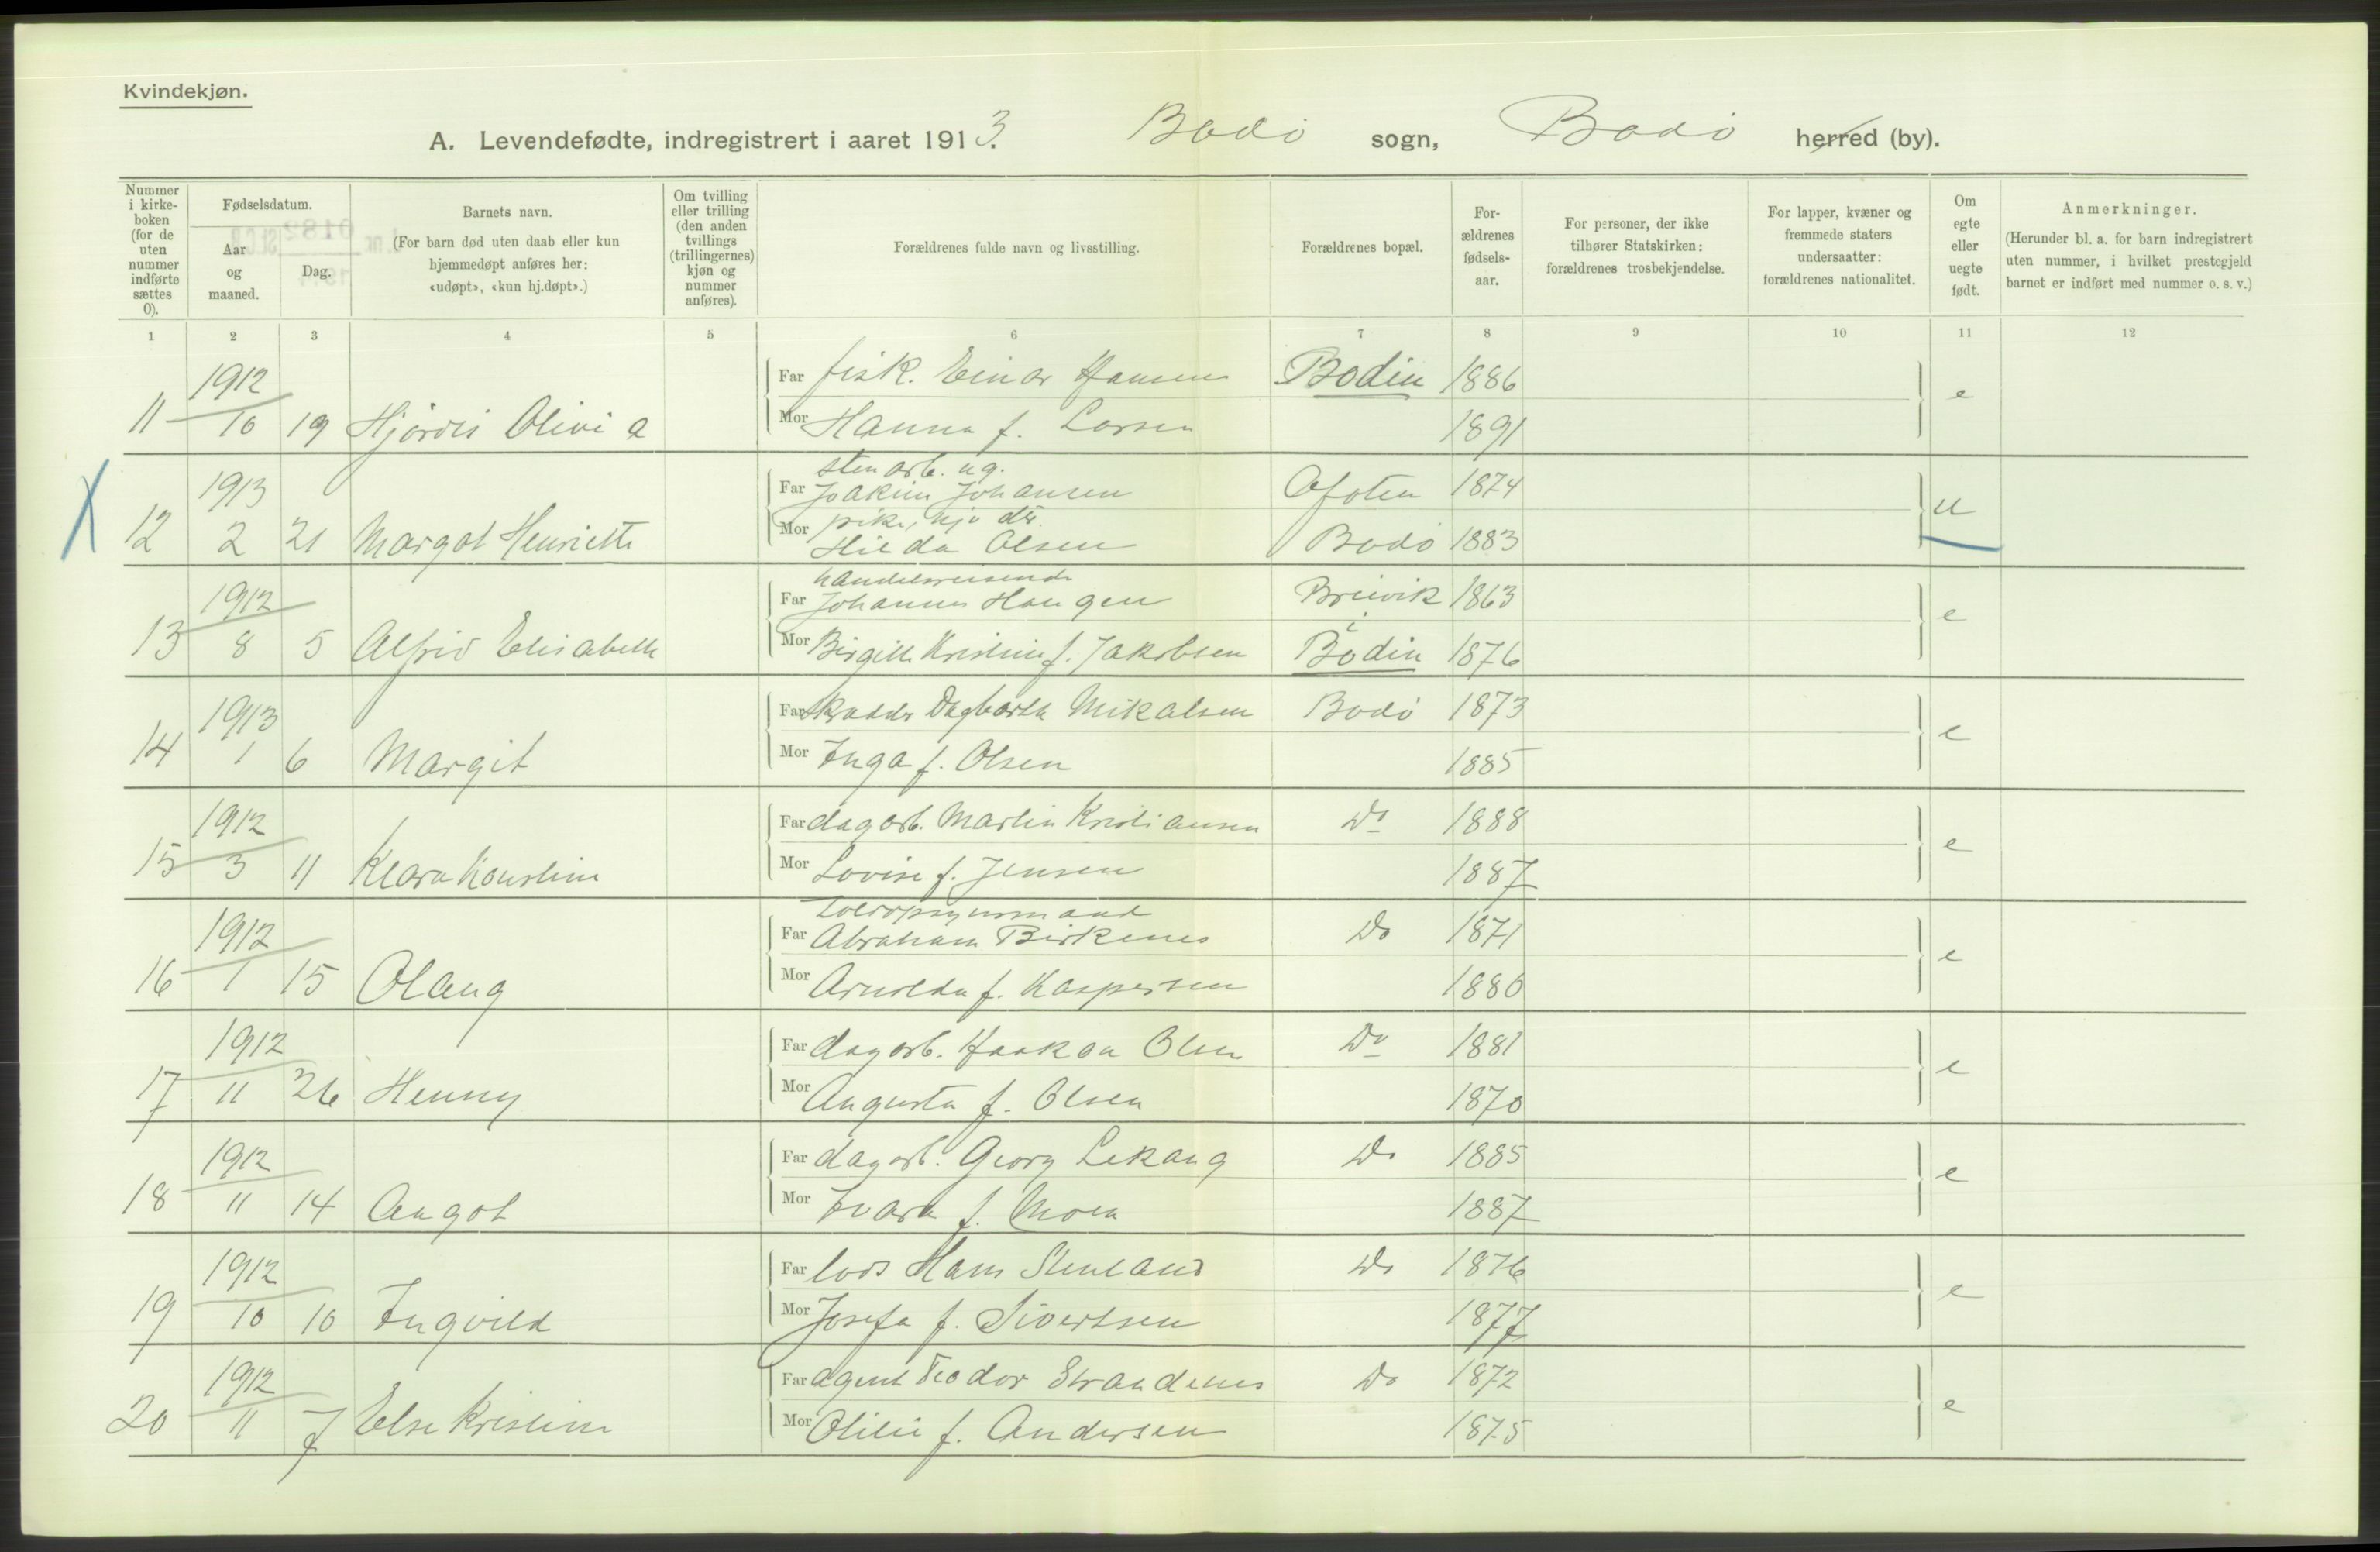 Kvindekjøn.
A. Levendefødte, indregistrert i aaret 1913. Bodø sogn, Bodø herred (by).
Nummer i kirke-boken (for de uten nummer indførte sættes 0).
Fødselsdatum.
Aar og maaned.
Dag.
Barnets navn.
(For barn død uten daab eller kun hjemmedøpt anføres her: «udøpt», «kun hj.døpt».)
Om tvilling eller trilling (den anden tvillings (trillingernes) kjøn og nummer anføres).
Forældrenes fulde navn og livsstilling.
Forældrenes bopæl.
For-ældrenes fødsels-aar.
For personer, der ikke tilhører Statskirken: forældrenes trosbekjendelse.
For lapper, kvæner og fremmede staters undersaatter: forældrenes nationalitet.
Om egte eller uegte født.
Anmerkninger.
(Herunder bl. a. for barn indregistrert uten nummer, i hvilket prestegjeld barnet er indført med nummer o. s. v.)
1 2 3 4 5 6 7 8 9 10 11 12
1912 Far fisk. Einar Hansen Bodin 1886 e
11 10 19 Hjørdis Olivia Mor Hanna f. Larsen 1891
stenarb. ug.
1913 Far Joakim Johansen Ofoten 1874 u
pike,
12 2 21 Margot Henriette Mor Hilda Olsen Bodø 1883
handelsreisende
1912 Far Johannes Haugen Breivik i 1863 e
13 8 5 Alfrid Elisabeth Mor Birgitte Kristine f. Jakobsen Bodin 1876
1913 Far skradder Dagbarth Mikalsen Bodø 1873 e
14 1 6 Margit Mor Inga f. Olsen 1885
1912 Far dagarb. Martin Kristiansen Do 1888 e
15 3 11 Klara Konstine Mor Lovise f. Jensen 1887
toldopsynsmand
1912 Far Abraham Birkenes Do 1871 e
16 1 15 Olaug Mor Arnolda f. Kaspersen 1880
1912 Far dagarb. Haakon Olsen Do 1881 e
17 11 26 Henny Mor Augusta f. Olsen 1870
1912 Far dagarb. Georg Lekang Do 1885 e
18 11 14 Aagot Mor Ivara f. Moen 1887
1912 Far lods Hans Stenland Do 1876 e
19 10 10 Ingvild Mor Josefa f. Sivertsen 1877
1912 Far agent Teodor Strandenes Do 1872 e
20 11 7 Else Kristine Mor Otilie f. Andersen 1875